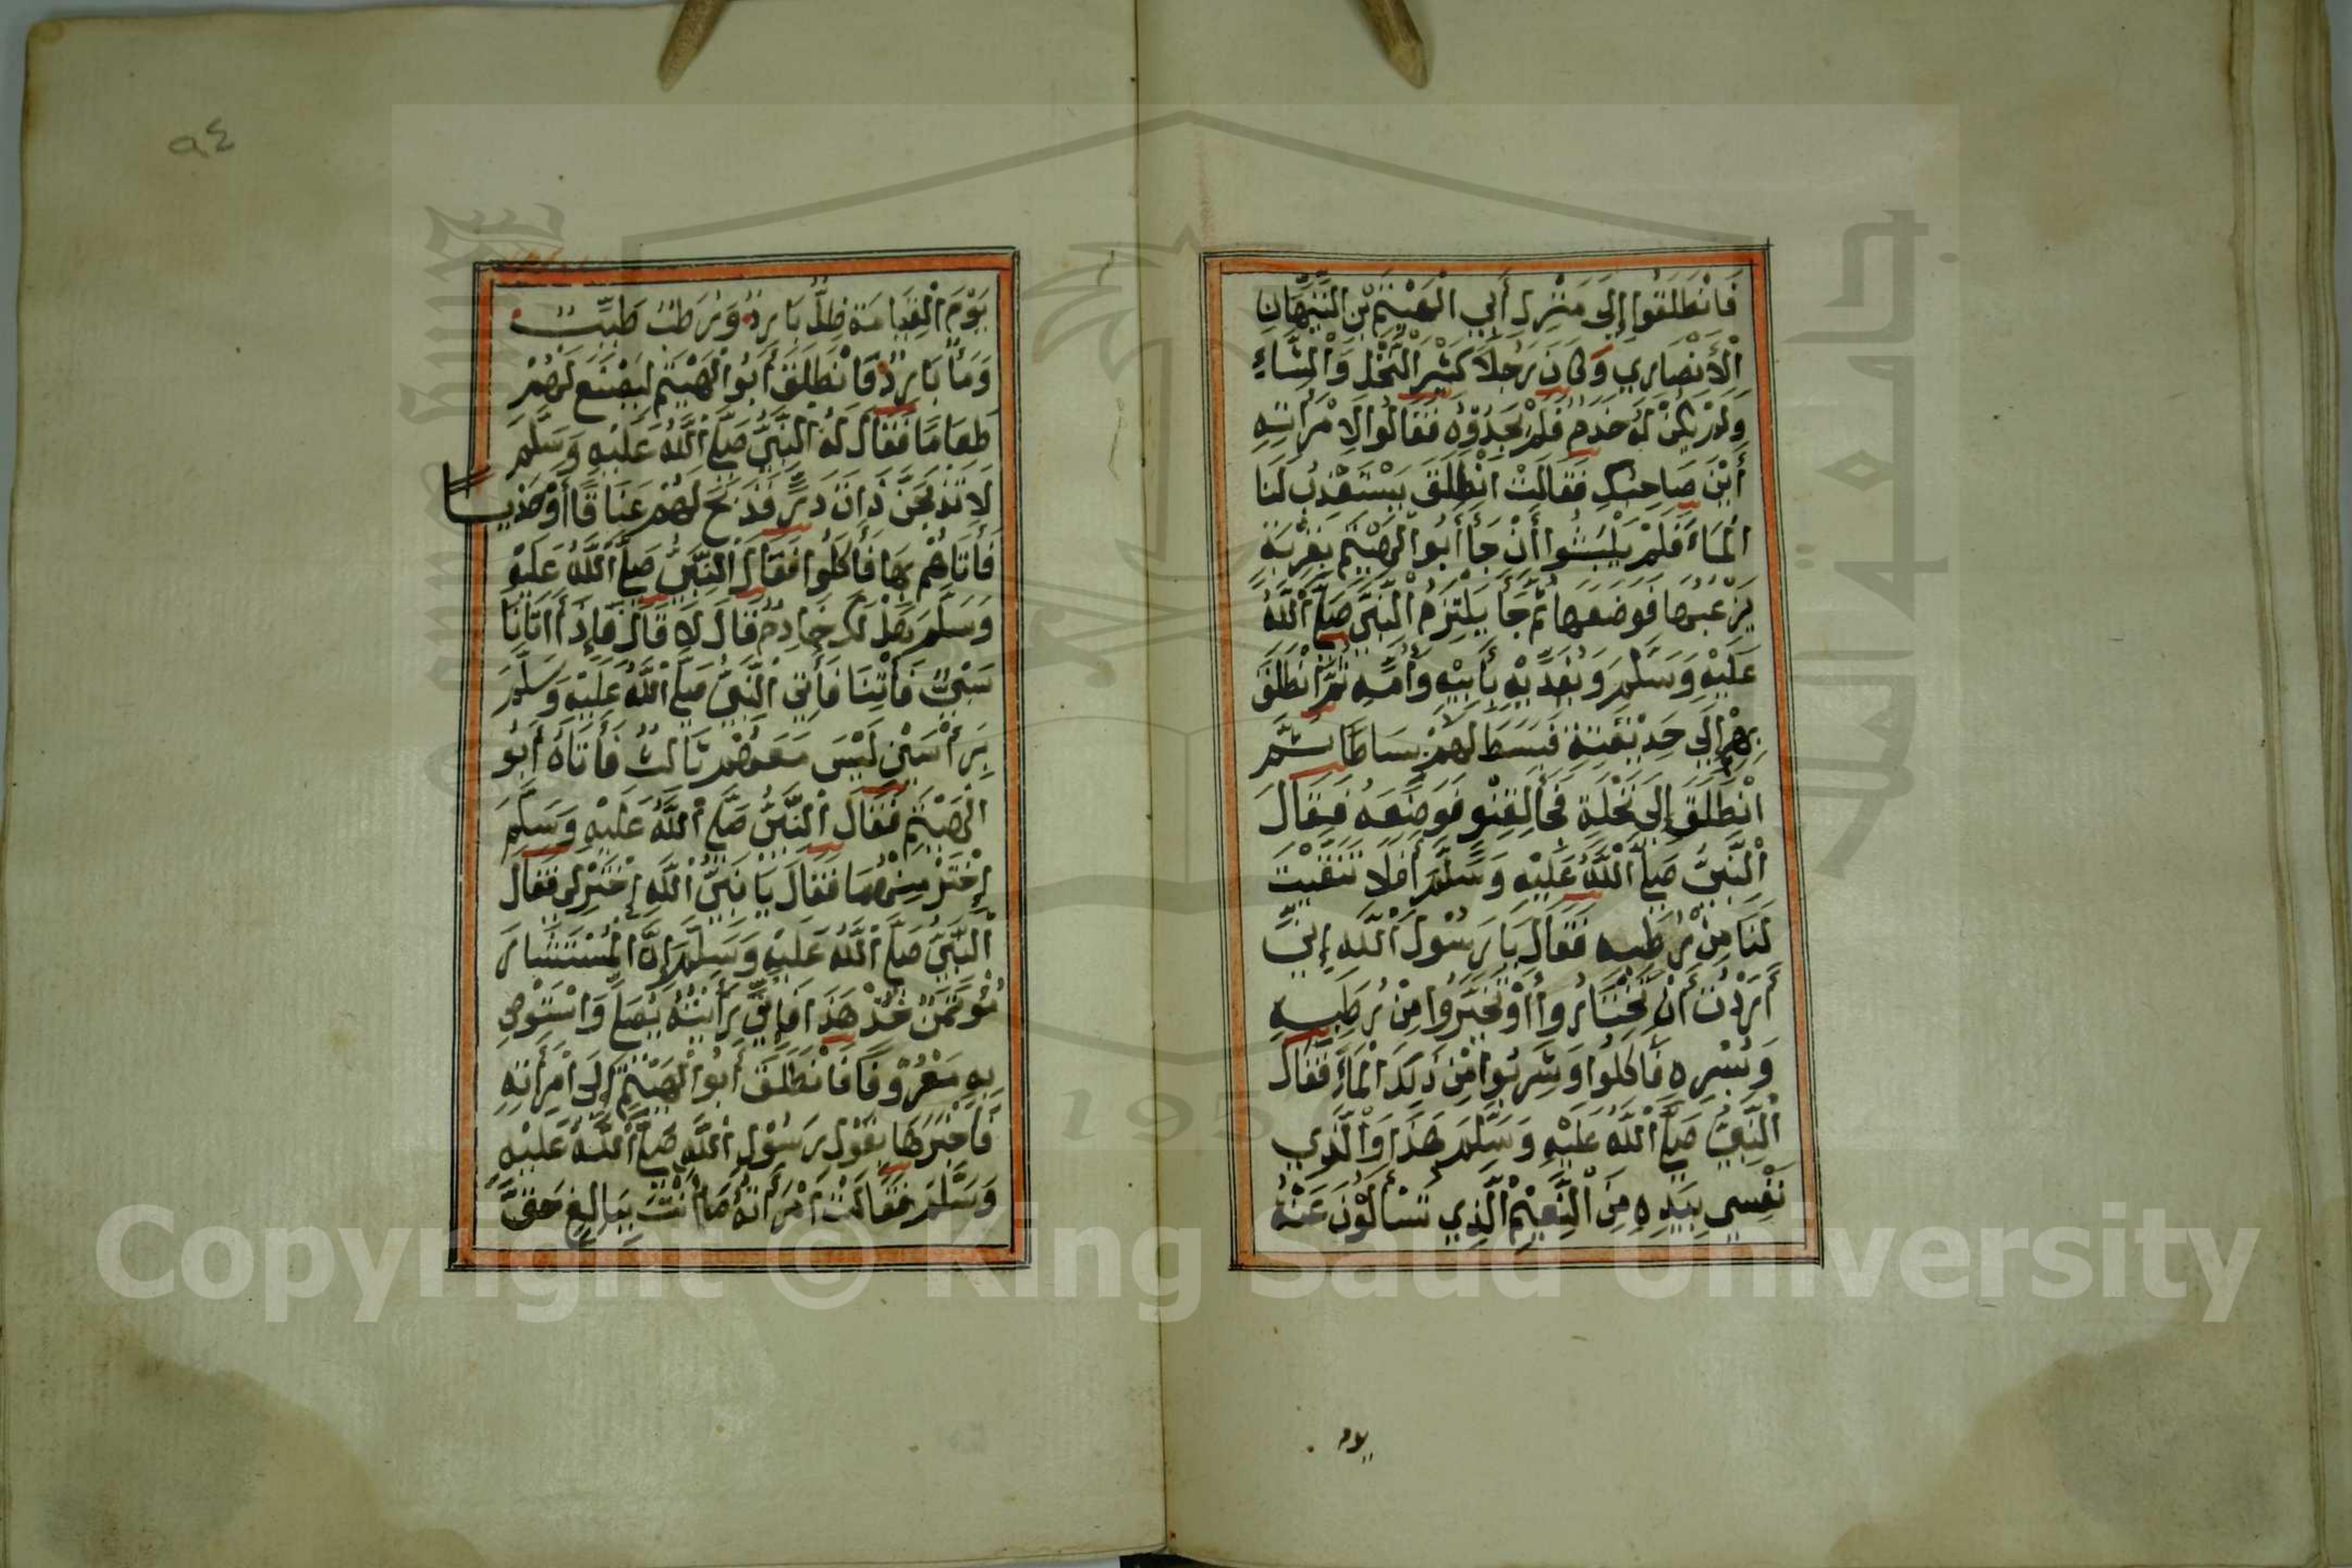 فَانْطَلَقُوا إِلَى مَنْزِلِ أَبِي الْهَيْثَمِ بْنِ التَّيِّهَانِ
الْأَنْصَارِي وَكَانَ رَجُلًا كَثِيْرَ النَّخْلِ وَالشَّاءِ
وَلَمْ يَكُنْ لَهُ خَدَمٌ فَلَمْ يَجِدُوْهُ فَقَالُوْا لِامْرَأَتِهِ
أَيْنَ صَاحِبُكِ فَقَالَتْ انْطَلَقَ يَسْتَعْذِبُ لَنَا
الْمَاءَ فَلَمْ يَلْبَثُوا أَنْ جَاَ أَبُوا الْهَيْثَمِ بِقِرْبَةٍ
يَزْعَبُهَا فَوَضَعَهَا ثُمَّ جَاَ يَلْتَزِمُ النَّبِيَّ صَلَّى اللَّهُ
عَلَيْهِ وَسَلَّمَ وَيُفَدِّيْهِ بِأَبِيْهِ وَأُمِّهِ ثُمَّ انْطَلَقَ
بِهِمْ إِلَى حَدِيْقَتِهِ فَبَسَطَ لَهُمْ بِسَاطًا ثُمَّ
انْطَلَقَ إِلَى نَخْلَةٍ فَجَاَ بِقِنْوٍ فَوَضَعَهُ فَقَالَ
النَّبِيُّ صَلَّى اللَّهُ عَلَيْهِ وَسَلَّمَ أَفَلَا تَنَقَّيْتَ
لَنَا مِنْ رُطَبِهِ فَقَالَ يَا رَسُوْلَ اللَّهِ إِنِّي
أَرَدْتُ أَنْ تَخْتَارُوا أَوْ تَخَيَّرُوا مِنْ رُطَبِهِ
وَبُسْرِهِ فَأَكَلُوا وَشَرِبُوا مِنْ ذَلِكَ الْمَاءِ فَقَالَ
النَّبِيُّ صَلَّى اللَّهُ عَلَيْهِ وَسَلَّمَ هَذَا وَالَّذِي
نَفْسِي بِيَدِهِ مِنَ النَّعِيْمِ الَّذِي تُسْأَلُوْنَ عَنْهُ
يوم
٩٤
يَوْمَ الْقِيَامَةِ ظِلٌّ بَارِدٌ وَرُطَبٌ طَيِّبٌ
وَمَاءٌ بَارِدٌ فَانْطَلَقَ أَبُوا الْهَيْثَمِ لِيَصْنَعَ لَهُمْ
طَعَامًا فَقَالَ لَهُ النَّبِيُّ صَلَّى اللَّهُ عَلَيْهِ وَسَلَّمَ
لَا تَذْبَحَنَّ ذَاتَ دَرٍّ فَذَبَحَ لَهُمْ عَنَاقًا أَوْ جَدْيًا
فَأَتَاهُمْ بِهَا فَأَكَلُوا فَقَالَ النَّبِيُّ صَلَّى اللَّهُ عَلَيْهِ
وَسَلَّمَ هَلْ لَكَ خَادِمٌ قَالَ لَا قَالَ فَإِذَا أَتَانَا
سَبْيٌ فَأْتِنَا فَأُتِيَ النَّبِيُّ صَلَّى اللَّهُ عَلَيْهِ وَسَلَّمَ
بِرَأْسَيْنِ لَيْسَ مَعَهُمْ ثَالِثٌ فَأَتَاهُ أَبُو
الْهَيْثَمِ فَقَالَ النَّبِيُّ صَلَّى اللَّهُ عَلَيْهِ وَسَلَّمَ
إِخْتَرْ مِنْهُمَا فَقَالَ يَا نَبِيَّ اللَّهِ إِخْتَرْ لِي فَقَالَ
النَّبِيُّ صَلَّى اللَّهُ عَلَيْهِ وَسَلَّمَ إِنَّ الْمُسْتَشَارَ
مُؤْتَمَنٌ خُذْ هَذَا فَإِنِّي رَأَيْتُهُ يُصَلِّ وَاسْتَوْصِ
بِهِ مَعْرُوْفًا فَانْطَلَقَ أَبُوا الْهَيْثَمِ إِلَى امْرَأَتِهِ
فَأَخْبَرَهَا بِقَوْلِ رَسُوْلِ اللَّهِ صَلَّى اللَّهُ عَلَيْهِ
وَسَلَّمَ فَقَالَتْ امْرَأَتُهُ مَا أَنْتَ بِبَالِغٍ حَقَّ
Copyright © King Saud University
1957